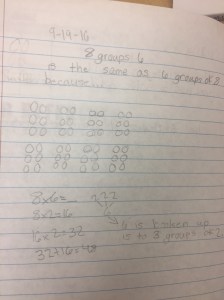 9-19-16
8 groups 6
is the same as 6 groups of 8
because...
8x6=
8x2=16
16x2=32
32+16=48
6 is broken up
is to 8 groups of 2